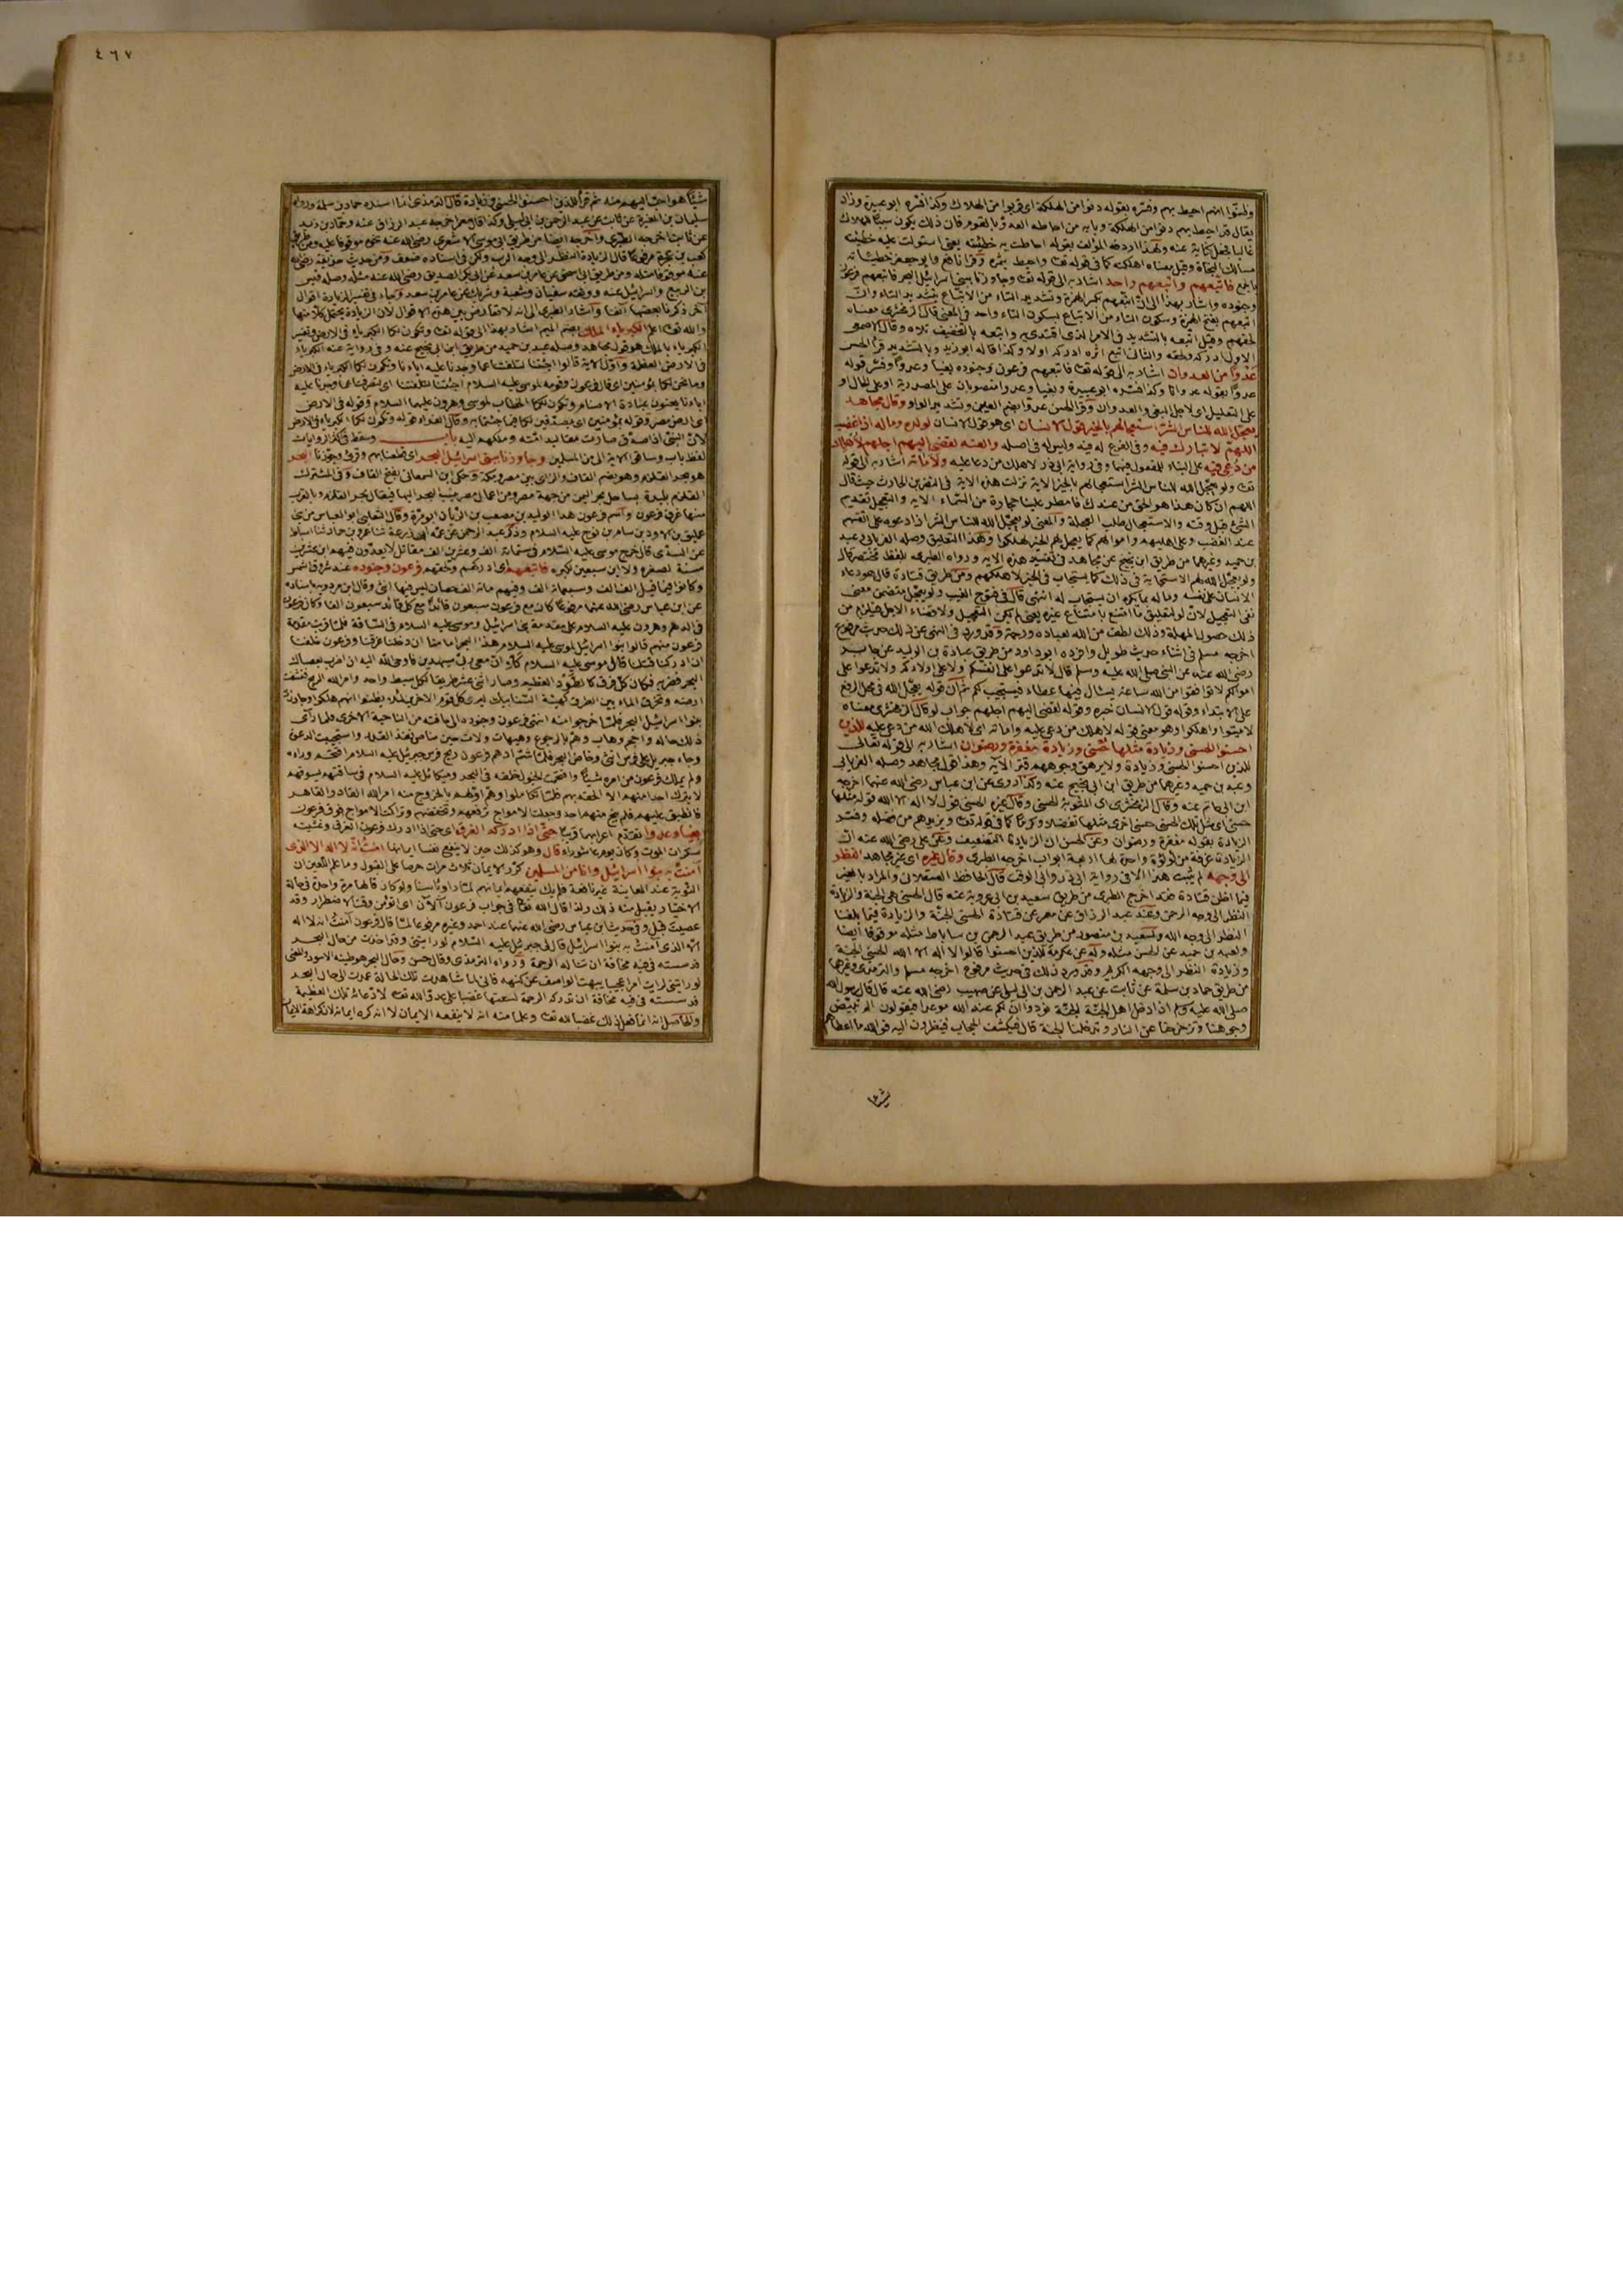 وظنوا انهم احيط بهم وفسره بقوله دنوا من الهلكة اى قربوا من الهلاك وكذا فسره ابو عبيدة وزاد
يقال قد احيط بهم دنوا من الهلكة وبابه من احاطه العدو بالقوم فان ذلك يكون سببا للهلاك
غالبا فجعل كناية عنه ولهذا اردفه المؤلف بقوله احاطت به خطيئته يعنى استولت عليه خطيئته
مسالك النجاة وقيل معناه اهلكته كما فى قوله تعالى واحيط بثمره وقرأ نافع وابو جعفر خطيئاته
بالجمع فاتبعهم واتبعهم واحد اشار به الى قوله تعالى وجاوزنا ببنى اسرائيل البحر فاتبعهم فرعون
وجنوده واشار بهذا الى ان اتبعهم بكسر الهمزة وتشديد التاء من الاتباع بتشديد التاء وان
اتبعهم بفتح الهمزة وسكون التاء من الاتباع بسكون التاء واحد فى المعنى قال الزمخشرى معناه
لحقهم وقيل اتبعه بالتشديد فى الامر الذى اقتدى به واتبعه بالتخفيف تلاه وقال الاصمعى
الاول ادركه ولحقه والثانى اتبع اثره ادركه اولا وكذا قاله ابو زيد وبالتشديد قرأ الحسن
عدوا من العدوان اشار به الى قوله تعالى فاتبعهم فرعون وجنوده بغيا وعدوا وفسر قوله
عدوا بقوله عدوانا وكذا فسره ابو عبيدة وبغيا وعدوا منصوبان على المصدرية او على الحال او
على التعليل اى لاجل البغى والعدوان وقرأ الحسن عدوا بضم العين وتشديد الواو وقال مجاهد
يعجل الله للناس الشر استعجالهم بالخير قول الانسان اى هو قول الانسان لولده وماله اذا غضب
اللهم لا تبارك فيه وفى الفرع له فيه وليس له فى اصله والعنه لقضى اليهم اجلهم لاهلك
من دعى عليه على البناء للمفعول فيهما وفى رواية ابى ذر لاهلك من دعا عليه ولاماته اشار به الى قوله
تعالى ولو يعجل الله للناس الشر استعجالهم بالخير الاية نزلت هذه الاية فى النضر بن الحارث حيث قال
اللهم ان كان هذا هو الحق من عندك فامطر علينا حجارة من السماء الاية والتعجيل تقديم
الشئ قبل وقته والاستعجال طلب العجلة والمعنى لو يعجل الله للناس الشر اذا دعوه على انفسهم
عند الغضب وعلى اهليهم واموالهم كما يعجل لهم الخير لهلكوا وهذا التعليق وصله الفريابى وعبد
بن حميد وغيرهما من طريق ابن نجيح عن مجاهد فى تفسير هذه الاية ورواه الطبرى بلفظ مختصر قال
ولو يعجل الله لهم الاستجابة فى ذلك كما يستجاب فى الخير لاهلكهم ومن طريق قتادة قال هو دعاء
الانسان على نفسه وماله بما يكره ان يستجاب له انتهى قال فى فتوح الغيب ولو يعجل متضمن معنى
نفى التعجيل لان لو لتعليق ما امتنع بامتناع غيره يعنى لم يكن التعجيل ولا قضاء الاجل فيلزم من
ذلك حصول المهلة وذلك لطف من الله لعباده ورحمة وقد ورد فى النهى عن ذلك حديث مرفوع
اخرجه مسلم فى اثناء حديث طويل وافرده ابو داود من طريق عبادة بن الوليد عن جابر
رضى الله عنه عن النبى صلى الله عليه وسلم قال لا تدعوا على انفسكم ولا على اولادكم ولا تدعوا على
اموالكم لا توافقوا من الله ساعة يسئال فيها عطاء فيستجيب لكم ثم ان قوله يعجل الله فى محل الرفع
على الابتداء وقوله قول الانسان خبره وقوله لقضى اليهم اجلهم جواب لو قال الزمخشرى معناه
لاميتوا واهلكوا وهو معنى قوله لاهلك من دعى عليه واماته اى لاهلك الله من دعى عليه للذين
احسنوا الحسنى وزيادة مثلها حسنى وزيادة مغفرة ورضوان اشار به الى قوله تعالى
للذين احسنوا الحسنى وزيادة ولا يرهق وجوههم قتر الآية وهذا قول مجاهد وصله الفريابى
وعبد بن حميد وغيرهما من طريق ابن ابى نجيح عنه وكذا روى عن ابن عباس رضى الله عنهما اخرجه
ابن ابى حاتم عنه وقال الزمخشرى اى المثوبة الحسنى وقال غيره الحسنى قول لا اله الا الله قوله مثلها
حسنى اى مثل تلك الحسنى حسنى اخرى مثلها تفضلا وكرما كما فى قوله تعالى ويزيدهم من فضله وفسر
الزيادة بقوله مغفرة ورضوان وعن الحسن ان الزيادة التضعيف وعن على رضى الله عنه ان
الزيادة غرفة من لؤلؤة واحدة لها اربعة ابواب اخرجه الطبرى وقال غيره اى غير مجاهد النظر
الى وجهه لم يثبت هذا الا فى رواية ابى ذر وابى الوقت قال الحافظ العسقلانى والمراد بالغير
فيما اظن قتادة فقد اخرج الطبرى من طريق سعيد بن ابى عروبة عنه قال الحسنى هى الجنة والزيادة
النظر الى وجه الرحمن وعند عبد الرزاق عن معمر عن قتادة الحسنى الجنة والزيادة فيما بلغنا
النظر الى وجه الله ولسعيد بن منصور من طريق عبد الرحمن بن ساباط مثله موقوفا ايضا
ولعبد بن حميد عن الحسن مثله وله عن عكرمة للذين احسنوا قالوا لا اله الا الله الحسنى الجنة
وزيادة النظر الى وجهه الكريم وقد ورد ذلك فى حديث مرفوع اخرجه مسلم والترمذى وغيرهما
من طريق حماد بن سلمة عن ثابت عن عبد الرحمن بن ابى ليلى عن صهيب رضى الله عنه قال قال رسول الله
صلى الله عليه وسلم اذا دخل اهل الجنة الجنة نودوا ان لكم عند الله موعدا فيقولون الم تبيض
وجوهنا وتزحزحنا عن النار وتدخلنا الجنة قال فيكشف الحجاب فينظرون اليه فوالله ما اعطاهم
شيئا
٤٦٧
شيئا هو احب اليهم منه ثم قرأ للذين احسنوا الحسنى وزيادة قال الترمذى انما اسنده حماد بن سلمة ورواه
سليمان بن المغيرة عن ثابت عن عبد الرحمن بن ابى ليلى وكذا قال معمر اخرجه عبد الرزاق عنه وحماد بن زيد
عن ثابت اخرجه الطبرى واخرجه ايضا من طريق ابى موسى الاشعرى رضى الله عنه نحوه موقوفا عليه ومن طريق
كعب بن عجرة مرفوعا قال الزيادة النظر الى وجه الرب ولكن فى اسناده ضعف ومن حديث حذيفة رضى الله
عنه موقوفا مثله ومن طريق ابى اسحق عن عامر بن سعد عن ابى بكر الصديق رضى الله عنه مثله وصله قيس
بن الربيع واسرائيل عنه ووقفه سفيان وشعبة وشريك عن عامر بن سعد وجاء فى تفسير الزيادة اقوال
اخر ذكرنا بعضها آنفا واشار الطبرى الى انه لا تعارض بين هذه الاقوال لان الزيادة يحتمل كلا منها
والله تعالى اعلم الكبرياء الملك بضم الميم اشار بهذا الى قوله تعالى وتكون لكما الكبرياء فى الارض وتفسير
الكبرياء بالملك هو قول مجاهد وصله عبد بن حميد من طريق ابن ابى نجيح عنه وفى رواية عنه الكبرياء
فى الارض العظمة واول الاية قالوا اجئتنا لتلفتنا عما وجدنا عليه اباءنا وتكون لكما الكبرياء فى الارض
وما نحن لكما بمؤمنين اى قال فرعون وقومه لموسى عليه السلام اجئتنا لتلفتنا اى لتصرفنا عما وجدنا عليه
اباءنا يعنون عبادة الاصنام وتكون لكما الخطاب لموسى وهرون عليهما السلام وقوله فى الارض
اى ارض مصر وقوله بمؤمنين اى بمصدقين لكما فيما جئتما به وقال الفراء قوله وتكون لكما الكبرياء فى الارض
لان النبى اذا صدق صارت مقاليد امته وملكهم اليه باب وسقط فى اكثر الروايات
لفظ باب وساقى الاية الى من المسلمين وجاوزنا ببنى اسرائيل البحر اى قطعنا بهم وقرئ وجوزنا البحر
هو بحر القلزم وهو بضم القاف والزاى بين مصر ومكة وحكى ابن السمعانى بفتح القاف وفى المشترك
القلزم بليدة بساحل بحر اليمن من جهة مصر ومن اعمال مصر ينسب البحر اليها فيقال بحر القلزم وبالقرب
منها غرق فرعون واسم فرعون هذا الوليد بن مصعب بن الريان ابو مرة وقال الثعلبى ابو العباس من بنى
عمليق بن لاود بن سام بن نوح عليه السلام وذكر عبد الرحمن عن عمه ابى زرعة ثنا عمرو بن حماد ثنا اسباط
عن السدى قال خرج موسى عليه السلام فى ستمائة الف وعشرين الف مقاتل لا يعدون فيهم ابن عشرين
سنة لصغره ولا ابن سبعين لكبره فاتبعهم اى ادركهم ولحقهم فرعون وجنوده عند شروق الشمس
وكانوا فيما قيل الف الف وسبعمائة الف وفيهم مائة الف حصان ليس فيها انثى وقال ابن مردويه باسناده
عن ابن عباس رضى الله عنهما مرفوعا كان مع فرعون سبعون قائدا مع كل قائد سبعون الفا وكان فرعون
فى الدهم وهرون عليه السلام على مقدمة بنى اسرائيل وموسى عليه السلام فى الساقة فلما قربت مقدمة
فرعون منهم قالوا بنوا اسرائيل لموسى عليه السلام هذا البحر امامنا ان دخلنا غرقنا وفرعون خلفنا
ان ادركنا قتلنا قال موسى عليه السلام كلا ان معى ربى سيهدين فاوحى الله اليه ان اضرب بعصاك
البحر فضربه فكان كل فرق كالطود العظيم وصار اثنى عشر طريقا لكل سبط واحد وامر الله الريح فنشفت
ارضه وتخرق الماء بين الطرق كهيئة الشبابيك ليرى كل قوم الاخرين لئلا يظنوا انهم هلكوا وجاوزت
بنوا اسرائيل البحر فلما خرجوا منه انتهى فرعون وجنوده الى حافته من الناحية الاخرى فلما رأى
ذلك هاله واحجم وهاب وهم بالرجوع وهيهات ولات حين مناص نفذ القدر واستجيبت الدعوة
وجاء جبريل على فرس انثى وخاض البحر فلما شم ادهم فرعون ريح فرس جبريل عليه السلام اقتحم وراءه
ولم يملك فرعون من امره شيئا واقتحمت الخيول خلفه فى البحر وميكائيل عليه السلام فى ساقتهم يسوقهم
لا يترك احدا منهم الا الحقه بهم فلما تكاملوا وهم اولهم بالخروج منه امر الله القادر القاهر
فانطبق عليهم فلم ينج منهم احد وجعلت الامواج ترفعهم وتخفضهم وتراكمت الامواج فوق فرعون
بغيا وعدوا تقدم اعرابهما قريبا حتى اذا ادركه الغرق اى حتى اذا ادرك فرعون الغرق وغشيته
سكرات الموت وكان يوم عاشوراء قال وهو كذلك حين لا ينفع نفسا ايمانها امنت انه لا اله الا الذى
آمنت به بنوا اسرائيل وانا من المسلمين كرر الايمان ثلاث مرات حرصا على القبول وما علم اللعين ان
التوبة عند المعاينة غير نافعة فلم يك ينفعهم ايمانهم لما رأوا باسنا ولو كان قالها مرة واحدة فى حالة
الاختيار لقبل منه ذلك ولذا قال الله تعالى فى جواب فرعون آلآن اى اتؤمن وقت الاضطرار وقد
عصيت قبل وفى حديث ابن عباس رضى الله عنهما عند احمد وغيره مرفوعا لما قال فرعون آمنت انه لا اله
الا الذى آمنت به بنوا اسرائيل قال لى جبريل عليه السلام لو رايتنى وقد اخذت من حال البحر
فدسسته فى فيه مخافة ان تناله الرحمة ورواه الترمذى وقال حسن وحال البحر هو طينه الاسود والمعنى
لو رايتنى لرايت امرا عجيبا يبهت الواصف عن كنهه فانى لما شاهدت تلك الحالة عمدت الى حال البحر
فدسسته فى فيه مخافة ان تدركه الرحمة لسعتها غضبا على عدو الله تعالى لادعائه تلك العظيمة
والحاصل انه انما فعل ذلك غضبا لله تعالى وعلما منه انه لا ينفعه الايمان لا انه كره ايمانه لان كراهة الايمان